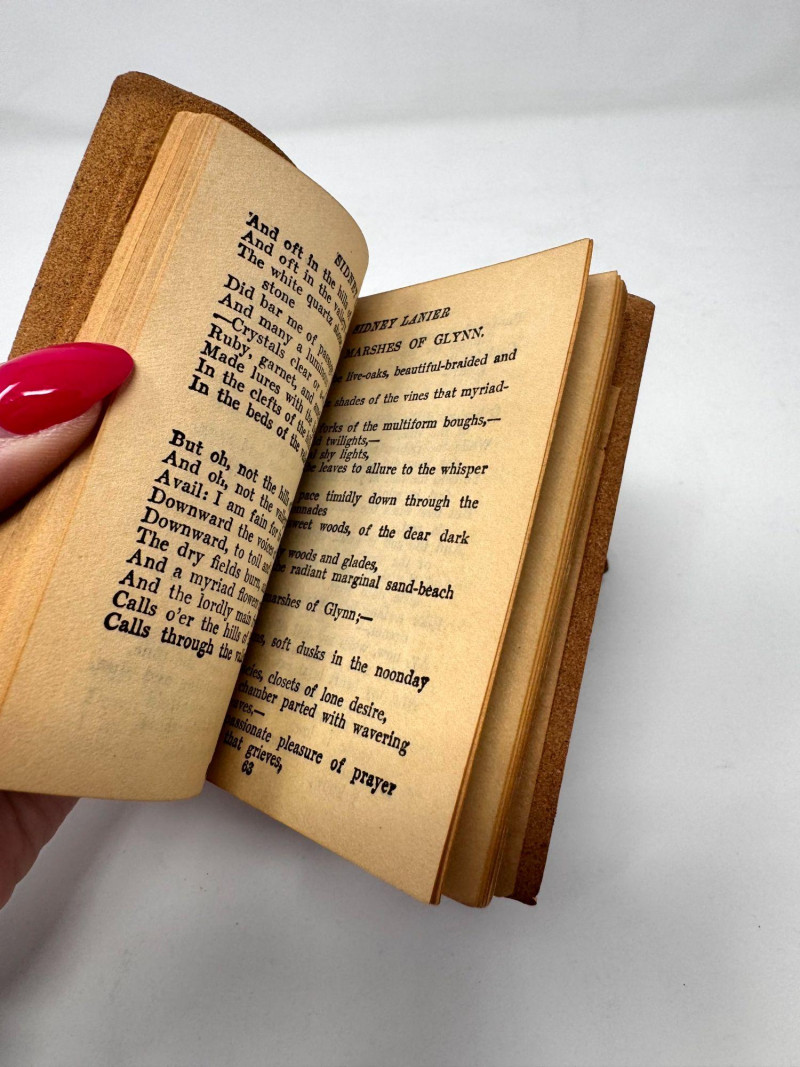 SIDNEY
And oft in the hills
And oft in the valleys
The white quartz
stone
Did bar me of passage
And many a luminous
—Crystals clear or
Ruby, garnet, and
Made lures with the
In the clefts of the
In the beds of the
But oh, not the hills
And oh, not the valleys
Avail: I am fain for
Downward the voices
Downward, to toil and
The dry fields burn,
And a myriad flowers
And the lordly main
Calls o'er the hills of
Calls through the
SIDNEY LANIER
MARSHES OF GLYNN.
live-oaks, beautiful-braided and
shades of the vines that myriad-
forks of the multiform boughs,—
twilights,—
shy lights,
leaves to allure to the whisper
pace timidly down through the
sweet woods, of the dear dark
woods and glades,
the radiant marginal sand-beach
marshes of Glynn;—
soft dusks in the noonday
closets of lone desire,
chamber parted with wavering
passionate pleasure of prayer
that grieves,
63